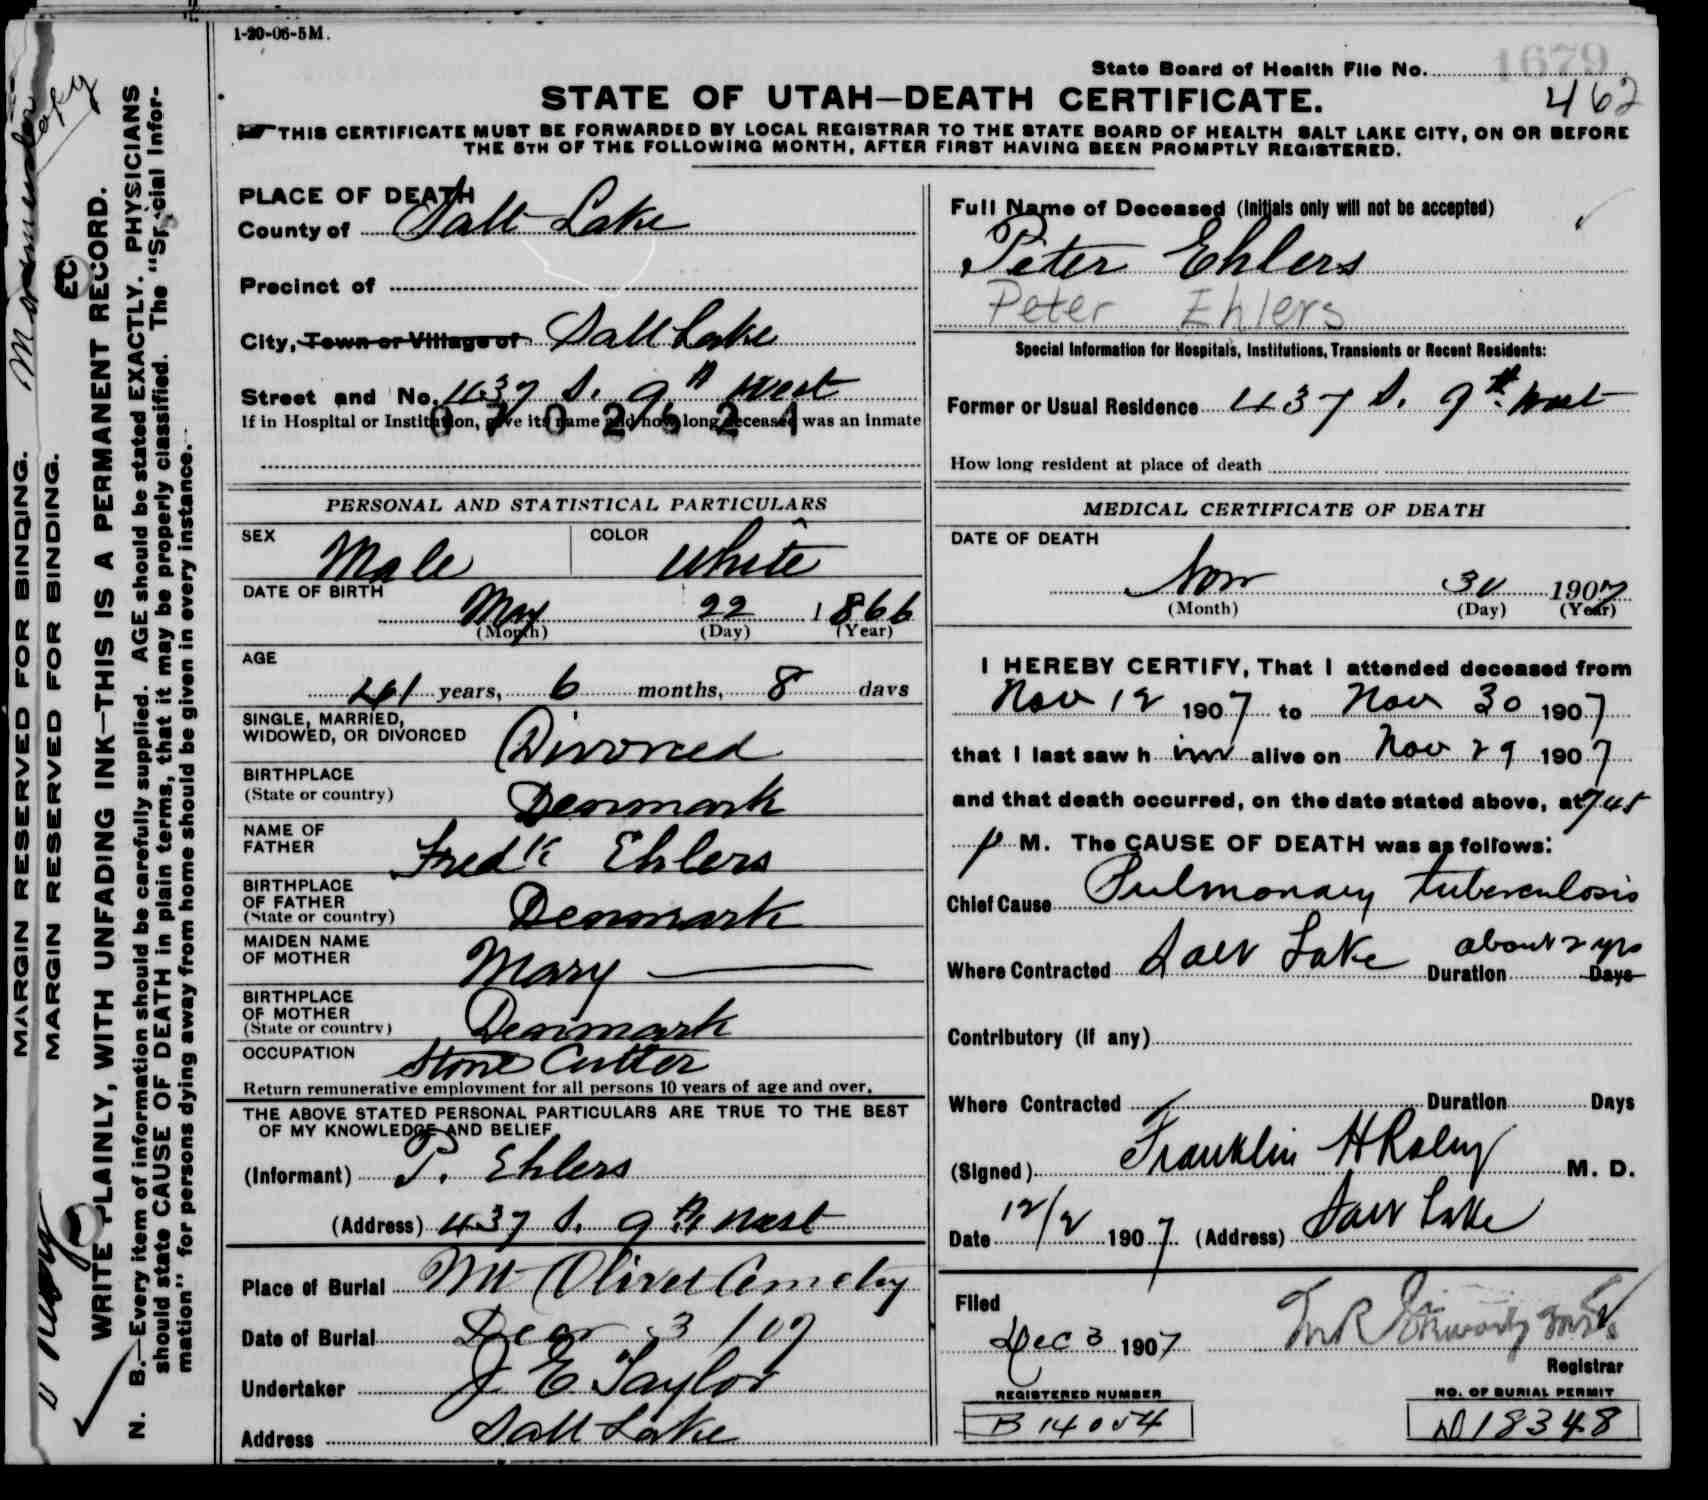 1-20-06-5M.
State Board of Health File No. 1679
462
STATE OF UTAH—DEATH CERTIFICATE.
THIS CERTIFICATE MUST BE FORWARDED BY LOCAL REGISTRAR TO THE STATE BOARD OF HEALTH SALT LAKE CITY, ON OR BEFORE
THE 5TH OF THE FOLLOWING MONTH, AFTER FIRST HAVING BEEN PROMPTLY REGISTERED.
PLACE OF DEATH
County of Salt Lake
Precinct of
City, Town or Village of Salt Lake
Street and No. 437 S. 9th West
If in Hospital or Institution, give its name and how long deceased was an inmate
PERSONAL AND STATISTICAL PARTICULARS
SEX Male COLOR White
DATE OF BIRTH
May 22 1866
(Month) (Day) (Year)
AGE
41 years, 6 months, 8 days
SINGLE, MARRIED,
WIDOWED, OR DIVORCED Divorced
BIRTHPLACE
(State or country) Denmark
NAME OF
FATHER Fredk Ehlers
BIRTHPLACE
OF FATHER
(State or country) Denmark
MAIDEN NAME
OF MOTHER Mary —
BIRTHPLACE
OF MOTHER
(State or country) Denmark
OCCUPATION Stone Cutter
Return remunerative employment for all persons 10 years of age and over.
THE ABOVE STATED PERSONAL PARTICULARS ARE TRUE TO THE BEST
OF MY KNOWLEDGE AND BELIEF
(Informant) P. Ehlers
(Address) 437 S. 9th West
Place of Burial Mt Olivet Cemetery
Date of Burial Dec 3/07
Undertaker J E Taylor
Address Salt Lake
Full Name of Deceased (Initials only will not be accepted)
Peter Ehlers
Peter Ehlers
Special Information for Hospitals, Institutions, Transients or Recent Residents:
Former or Usual Residence 437 S. 9th West
How long resident at place of death
MEDICAL CERTIFICATE OF DEATH
DATE OF DEATH
Nov 30 1907
(Month) (Day) (Year)
I HEREBY CERTIFY, That I attended deceased from
Nov 12 1907 to Nov 30 1907
that I last saw him alive on Nov 29 1907
and that death occurred, on the date stated above, at 745
p M. The CAUSE OF DEATH was as follows:
Chief Cause Pulmonary tuberculosis
Where Contracted Salt Lake Duration about 2 yrs Days
Contributory (if any)
Where Contracted Duration Days
(Signed) Franklin H Raley M. D.
Date 12/2 1907 (Address) Salt Lake
Filed
Dec 3 1907
Registrar
REGISTERED NUMBER
B 14054
NO. OF BURIAL PERMIT
D18348
MARGIN RESERVED FOR BINDING.
MARGIN RESERVED FOR BINDING.
EC
WRITE PLAINLY, WITH UNFADING INK—THIS IS A PERMANENT RECORD.
N. B.—Every item of information should be carefully supplied. AGE should be stated EXACTLY. PHYSICIANS
should state CAUSE OF DEATH in plain terms, that it may be properly classified. The "Special Infor-
mation" for persons dying away from home should be given in every instance.